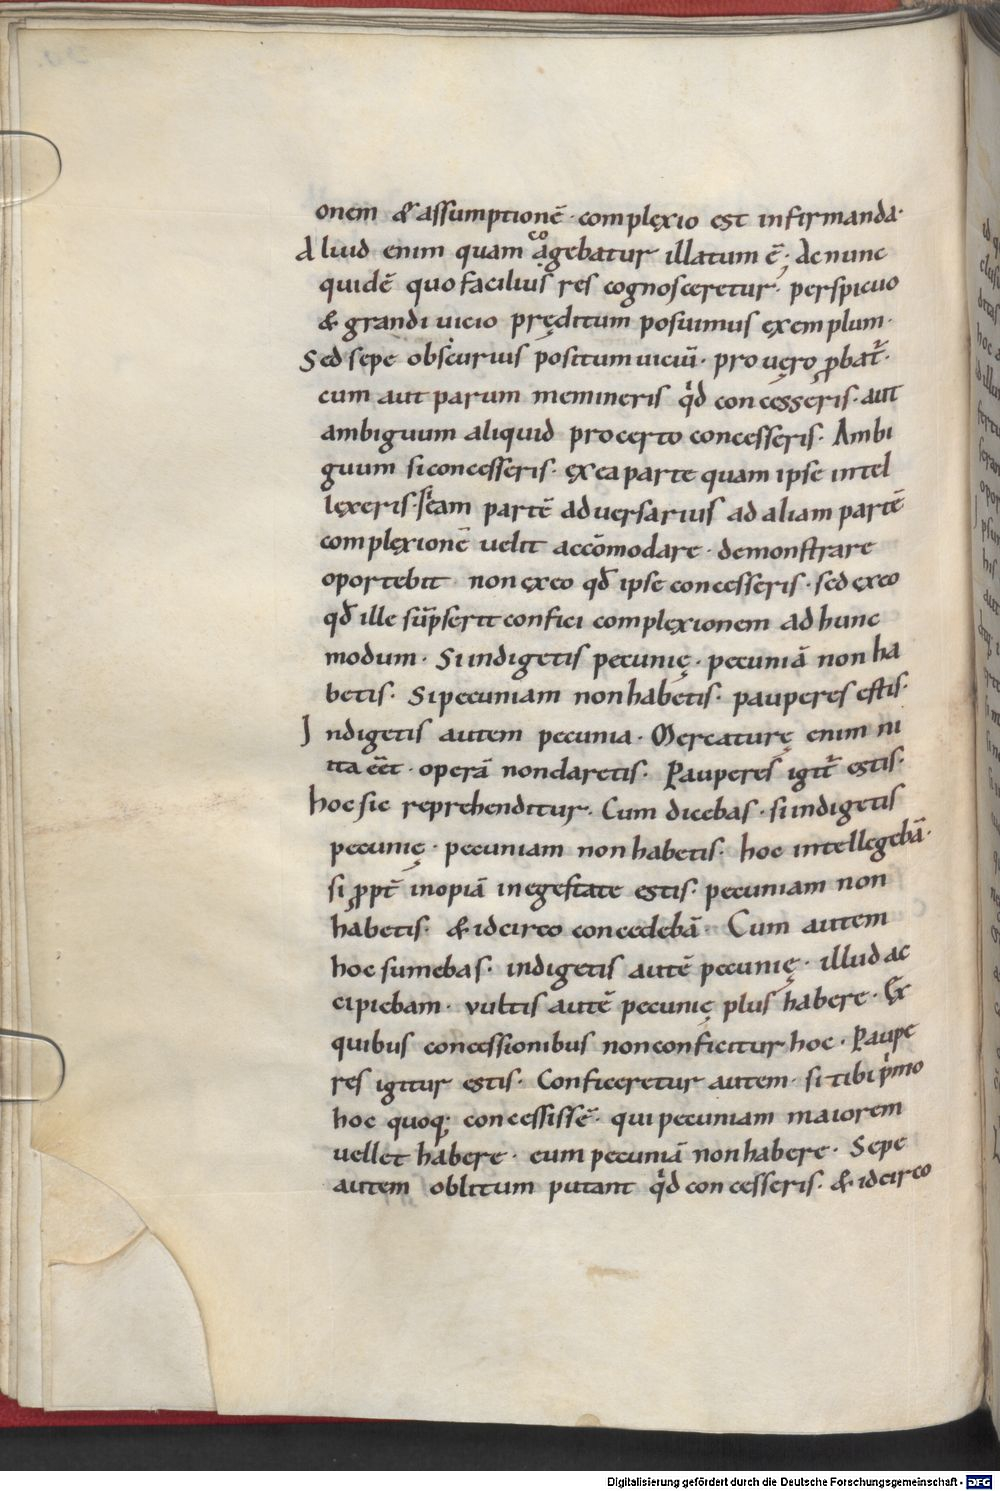 onem & assumptionē · complexio est infirmanda ·
Aliud enim quam cogebatur illatum ē · ac nunc
quidē quo facilius res cognosceretur · perspicuo
& grandi uicio pręditum posuimus exemplum ·
Sed sepe obscurius positum uiciū · pro uero ꝓbat᷑ ·
cum aut parum memineris qͥd concesseris · aut
ambiguum aliquid pro certo concesseris · Ambi
guum si concesseris · ex ea parte quam ipse intel
lexeris · sͥ eam partē aduersarius ad aliam partē
complexionē uelit accōmodare · demonstrare
oportebit non ex eo qd̄ ipse concesseris · sed ex eo
qd̄ ille sūpserit confici complexionem ad hunc
modum · Si indigetis pecunię · pecuniā non ha
betis · Si pecuniam non habetis · pauperes estis ·
Indigetis autem pecunia · Mercaturę enim ni
ita eēt · operā non daretis · Pauperes igit᷑ estis ·
hoc sic reprehenditur · Cum dicebas · si indigetis
pecunię · pecuniam non habetis · hoc intellegebā ·
si ꝓpt̄ inopiā in egestate estis · pecuniam non
habetis · & idcirco concedebā · Cum autem
hoc sumebas · indigetis autē pecunię · illud ac
cipiebam · vultis autē pecunię plus habere · Ex
quibus concessionibus non conficitur hoc · Paupe
res igitur estis · Conficeretur autem · si tibi pͥmo
hoc quoq; concessissē · qui pecuniam maiorem
uellet habere · eum pecuniā non habere · Sepe
autem oblitum putant qͥd concesseris · & idcirco
Digitalisierung gefördert durch die Deutsche Forschungsgemeinschaft - DFG